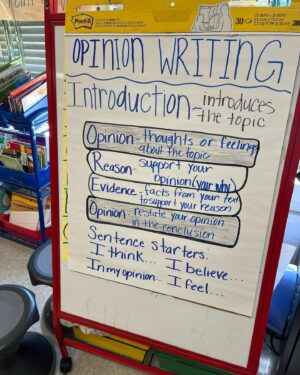 Post-it
30
OPINION WRITING
Introduction - introduces
the topic
Opinion - thoughts or feelings
about the topic
Reason - support your
opinion (your why)
Evidence - facts from your text
to support your reason
Opinion - restate your opinion
in the conclusion
Sentence starters:
I think... I believe...
In my opinion... I feel...